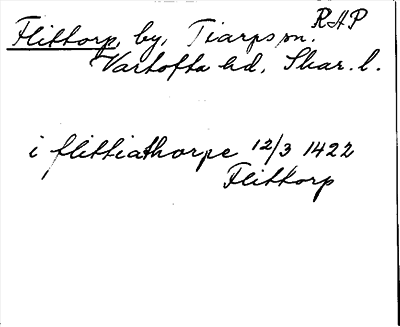 RAP
Flittorp, by, Tiarps sn.
Vartofta hd, Skar. l.
i flittiathorpe 12/3 1422
Flittorp